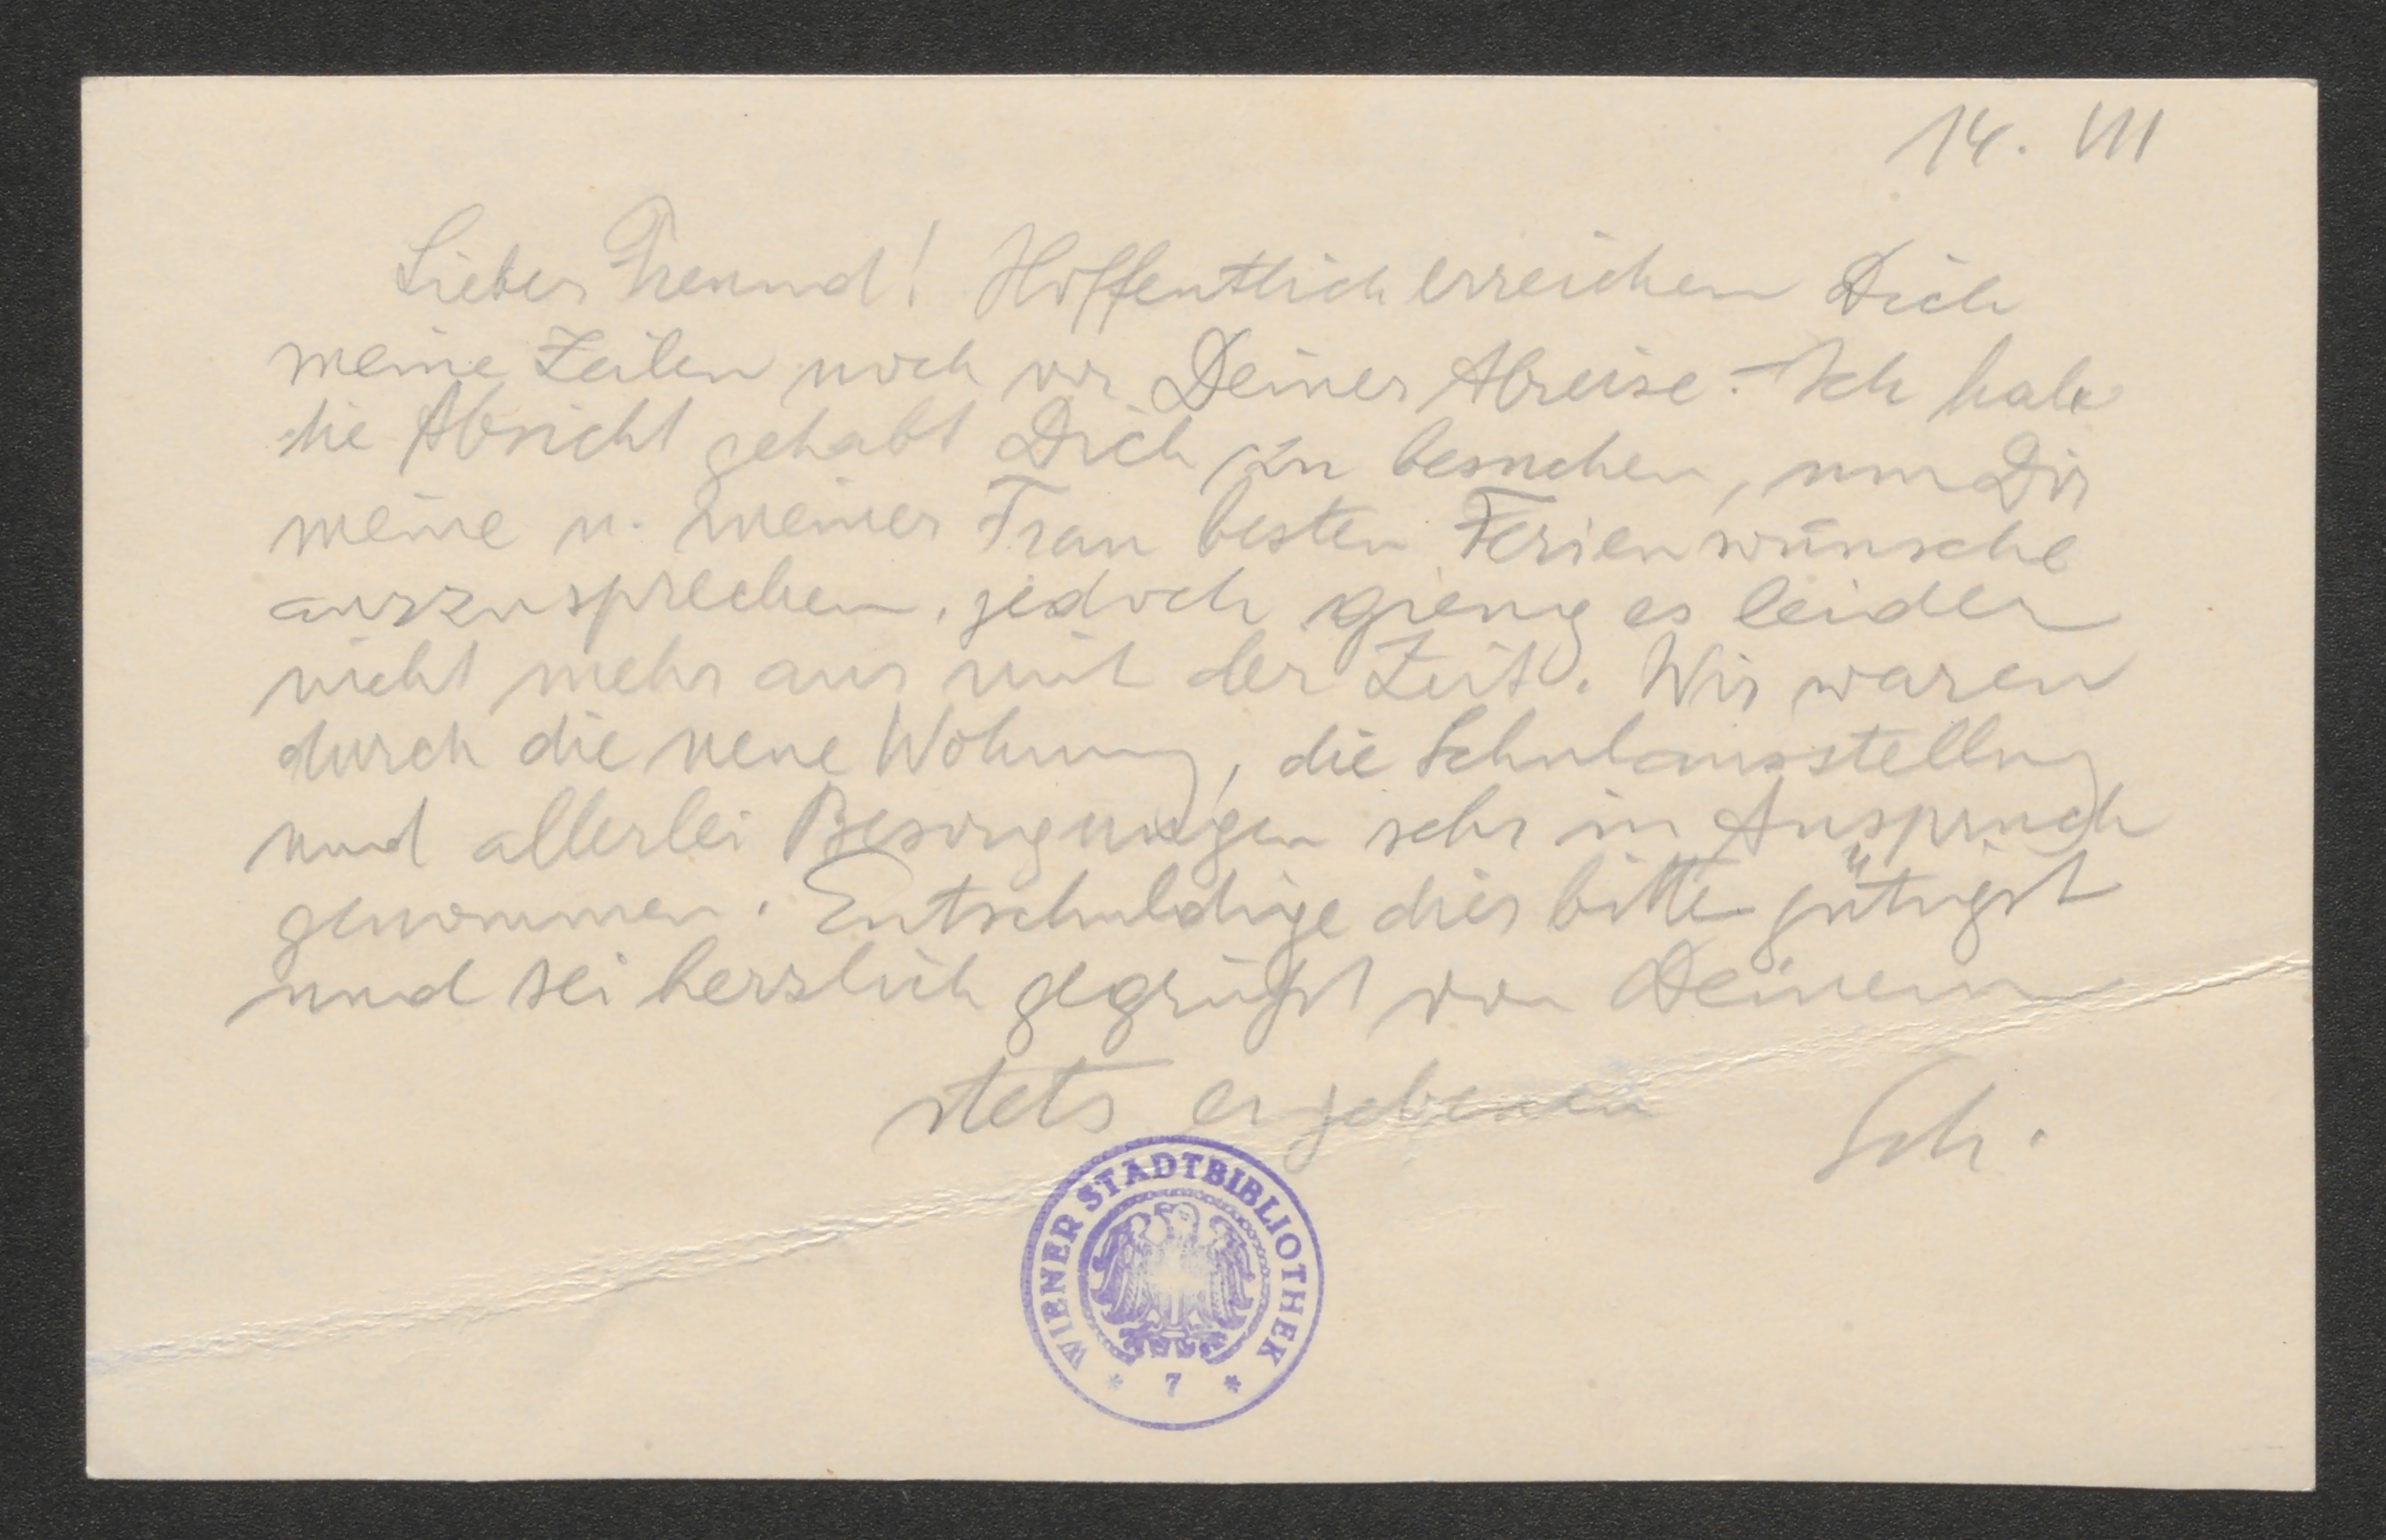 14. VII
Lieber Freund! Hoffentlich erreichen Dich
meine Zeilen noch vor Deiner Abreise. – Ich habe
die Absicht gehabt Dich zu besuchen, um Dir
meine u. meiner Frau besten Ferienwünsche
auszusprechen, jedoch gieng es leider
nicht mehr aus mit der Zeit. Wir waren
durch die neue Wohnung, die Schulausstellung
und allerlei Besorgungen sehr in Anspruch
genommen. Entschuldige dies bitte gütigst
und sei herzlich gegrüßt von Deinem
stets ergebenen Sch.
WIENER STADTBIBLIOTHEK
* 7 *